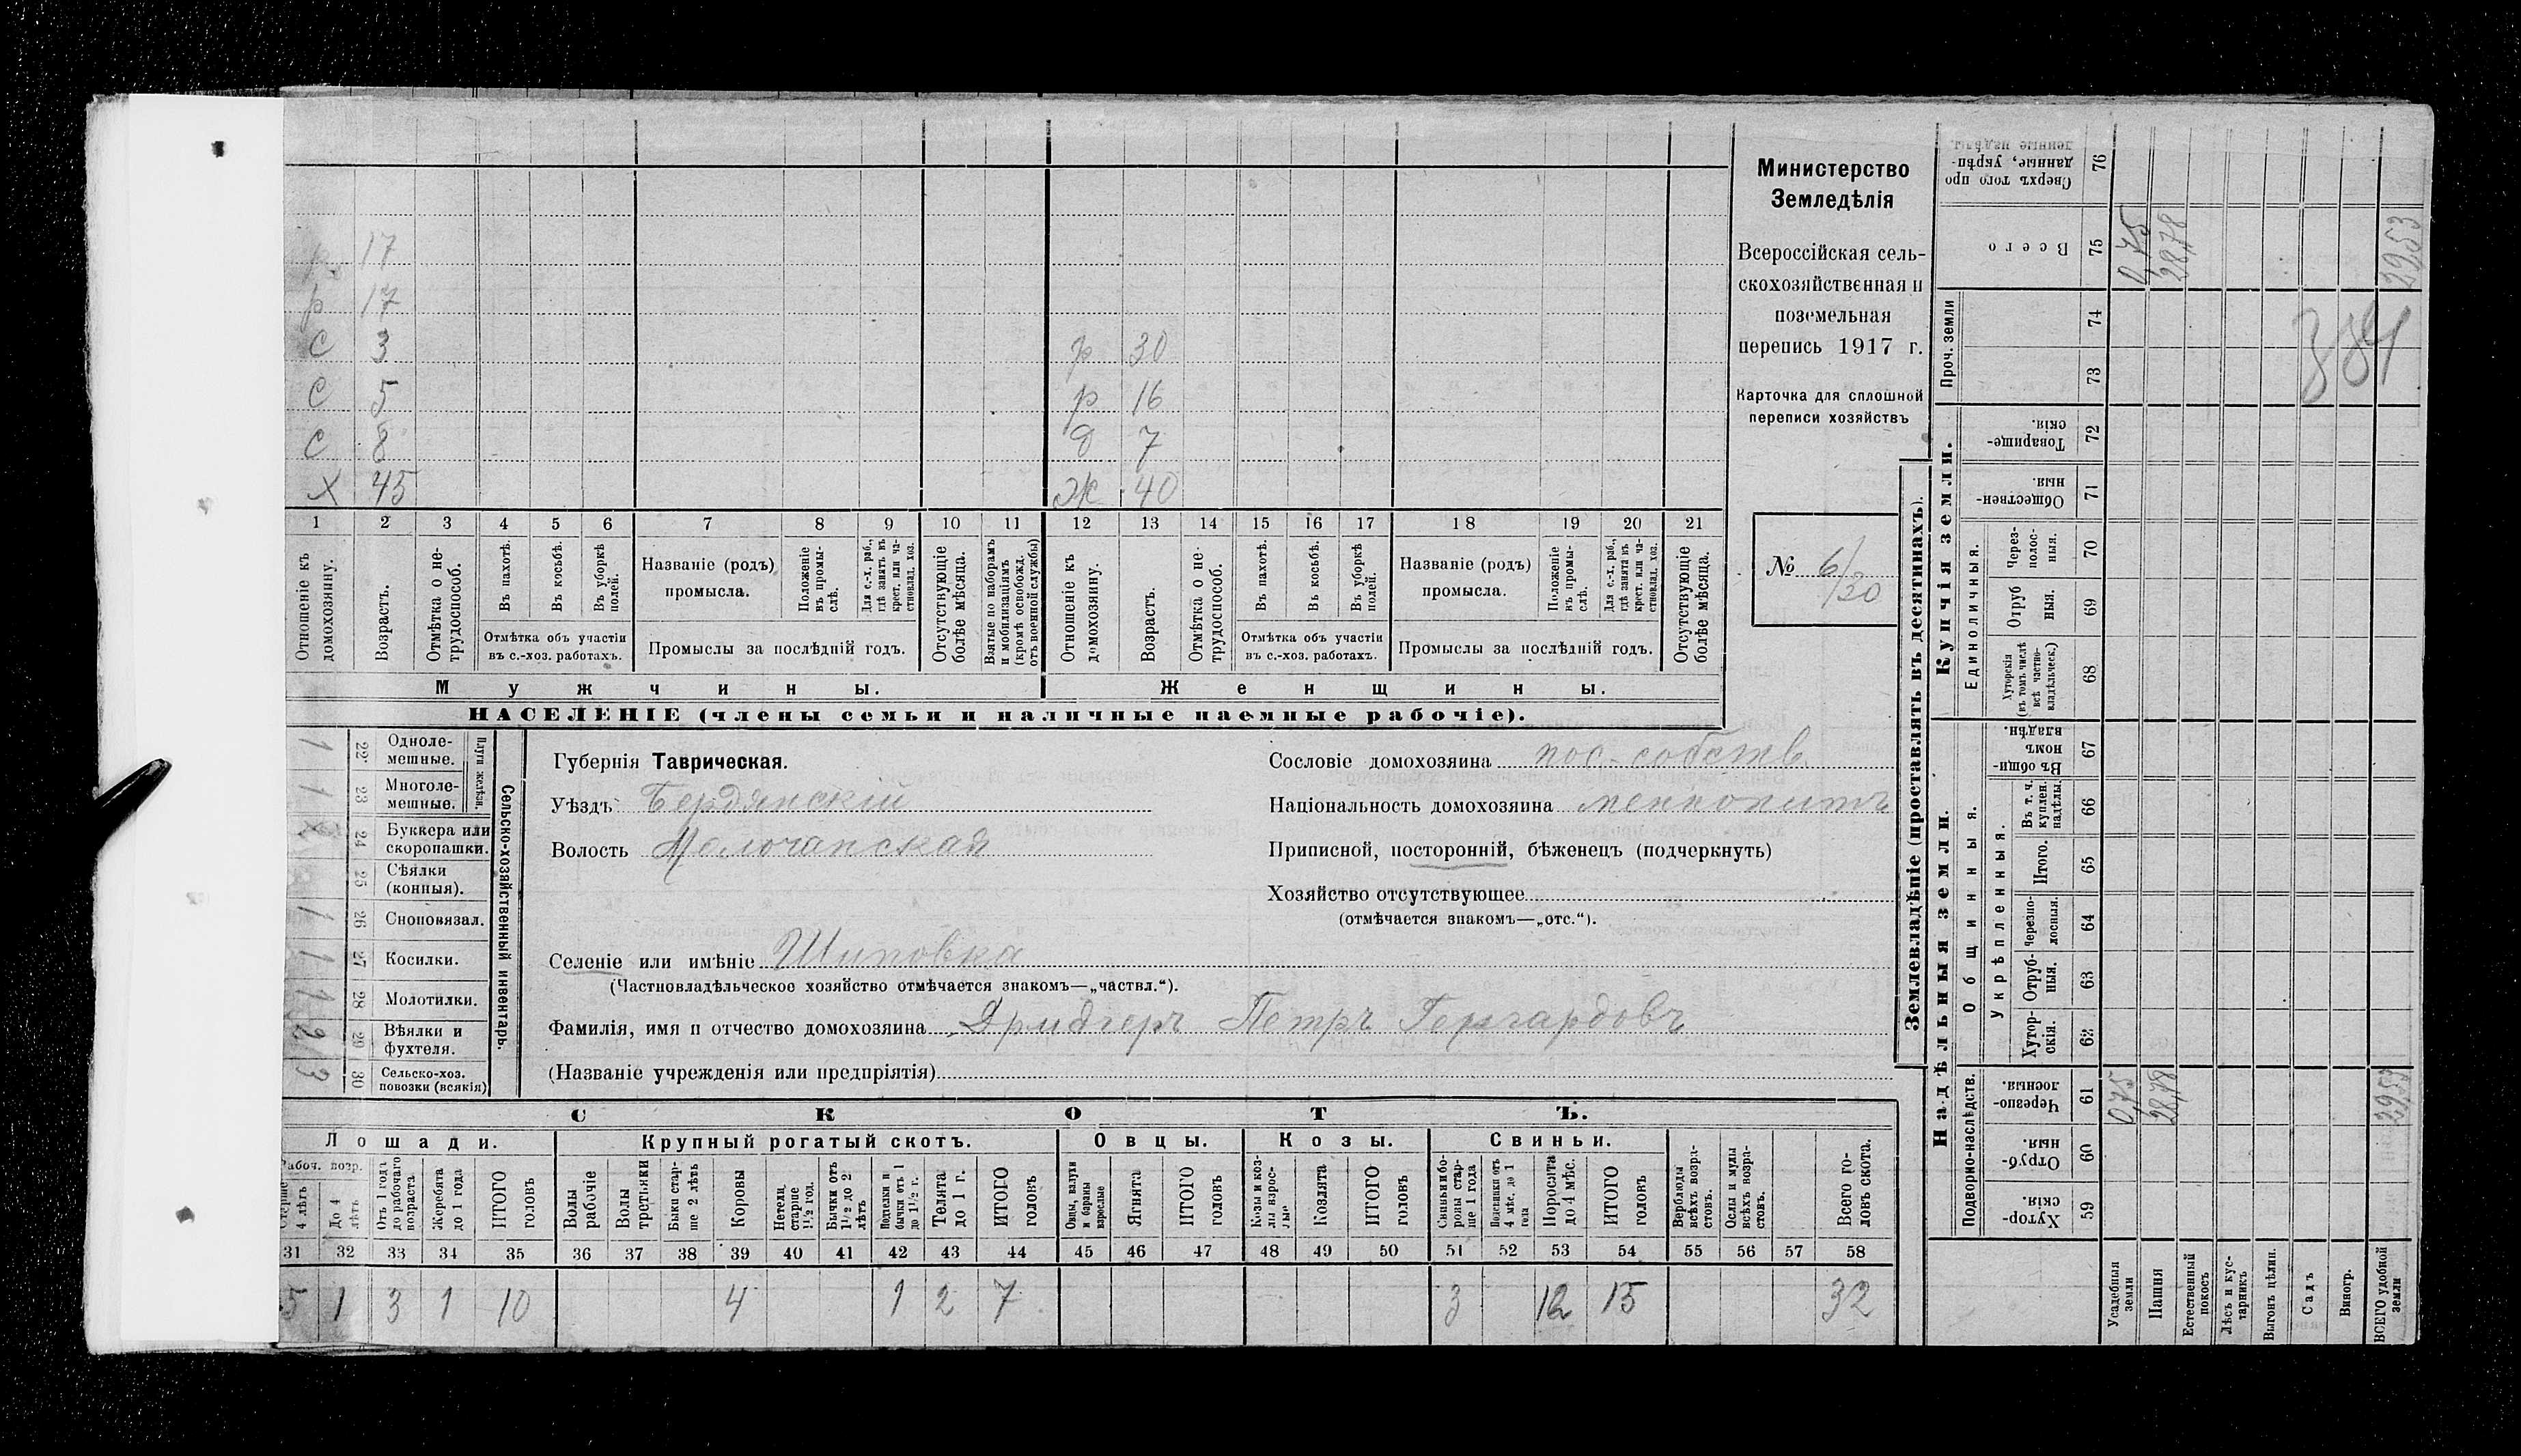 Министерство
Земледѣлія
Всероссійская сель-
скохозяйственная и
поземельная
перепись 1917 г.
Карточка для сплошной
переписи хозяйствъ
№ 6/20
р 17
р 17
С 3
р 30
С 5
р 16
С 8
д 7
Х 45
Ж 40
1 2 3 4 5 6 7 8 9 10 11 12 13 14 15 16 17 18 19 20 21
Отношеніе къ домохозяину.
Возрастъ.
Отмѣтка о не-трудоспособ.
Въ пахотѣ.
Въ косьбѣ.
Въ уборкѣ полей.
Отмѣтка объ участіи
въ с.-хоз. работахъ.
Названіе (родъ)
промысла.
Положеніе въ промы-слѣ.
Для с.-х. раб., гдѣ занятъ въ крест. или ча-стновлад. хоз.
Промыслы за послѣдній годъ.
Отсутствующіе болѣе мѣсяца.
Взятые по наборамъ и мобилизаціямъ (кромѣ освобожд. отъ военной службы)
Отношеніе къ домохозяину.
Возрастъ.
Отмѣтка о не-трудоспособ.
Въ пахотѣ.
Въ косьбѣ.
Въ уборкѣ полей.
Отмѣтка объ участіи
въ с.-хоз. работахъ.
Названіе (родъ)
промысла.
Положеніе въ промы-слѣ.
Для с.-х. раб., гдѣ занята въ крест. или ча-стновлад. хоз.
Промыслы за послѣдній годъ.
Отсутствующіе болѣе мѣсяца.
Мужчины.
Женщины.
НАСЕЛЕНІЕ (члены семьи и наличные наемные рабочіе).
Сельско-хозяйственный инвентарь.
Плуги желѣзн.
1 22 Одноле-мешные.
1 23 Многоле-мешные.
24 Буккера или скоропашки.
25 Сѣялки (конныя).
1 26 Сноповязал.
1 27 Косилки.
1 28 Молотилки.
2 29 Вѣялки и фухтеля.
3 30 Сельско-хоз. повозки (всякія)
Губернія Таврическая.
Уѣздъ Бердянскій
Волость Молочанская
Сословіе домохозяина пос.-собств.
Національность домохозяина меннонитъ
Приписной, посторонній, бѣженецъ (подчеркнуть)
Хозяйство отсутствующее
(отмѣчается знакомъ—„отс.“).
Селеніе или имѣніе Шиповка
(Частновладѣльческое хозяйство отмѣчается знакомъ—„частвл.“).
Фамилія, имя и отчество домохозяина Дридгеръ Петръ Гергардовъ
(Названіе учрежденія или предпріятія)
СКОТЪ.
Лошади.
Крупный рогатый скотъ.
Овцы.
Козы.
Свиньи.
Рабоч. возр.
Старше 4 лѣтъ
До 4 лѣтъ
Отъ 1 года до рабочаго возраста
Жеребята до 1 года
ИТОГО головъ
Волы рабочіе
Волы третьяки
Быки стар-ше 2 лѣтъ
Коровы
Нетели старше 1½ год.
Бычки отъ 1½ до 2 лѣтъ
Подтелки и бычки отъ 1 до 1½ г.
Телята до 1 г.
ИТОГО головъ
Овцы, валухи и бараны взрослые
Ягнята
ИТОГО головъ
Козы и коз-лы взрос-лые
Козлята
ИТОГО головъ
Свиньи и бо-ровы стар-ше 1 года
Подсвинки отъ 4 мѣс. до 1 года
Поросята до 4 мѣс.
ИТОГО головъ
Верблюды всѣхъ возра-стовъ.
Ослы и мулы всѣхъ возра-стовъ.
Всего го-ловъ скота.
31 32 33 34 35 36 37 38 39 40 41 42 43 44 45 46 47 48 49 50 51 52 53 54 55 56 57 58
5 1 3 1 10 4 1 2 7 3 12 15 32
Землевладѣніе (проставлять въ десятинахъ).
Надѣльныя земли.
Купчія земли.
Проч. земли
Подворно-наслѣдств.
Общинныя.
Укрѣпленныя.
Единоличныя.
Хутор-скія. 59
Отруб-ныя. 60
Черезпо-лосныя. 61
Хутор-скія. 62
Отруб-ныя. 63
Черезпо-лосныя. 64
Итого. 65
Въ т. ч. куплен. надѣлы. 66
Въ общи-номъ владѣн. 67
Хуторскія (въ томъ числѣ всѣ частно-владѣльческ.) 68
Отруб ныя. 69
Через-полос-ныя. 70
Обществен-ныя. 71
Товарище-скія. 72
73
74
Всего 75
Сверхъ того про данные, укрѣп-ленные надѣлы. 76
Усадебныя земли 0,75 0,75
Пашня 28,78 28,78
Естественный покосъ
Лѣсъ и кус-тарникъ
Выгонъ цѣлин.
Садъ
Виногр.
ВСЕГО удобной земли 29,53 29,53
384